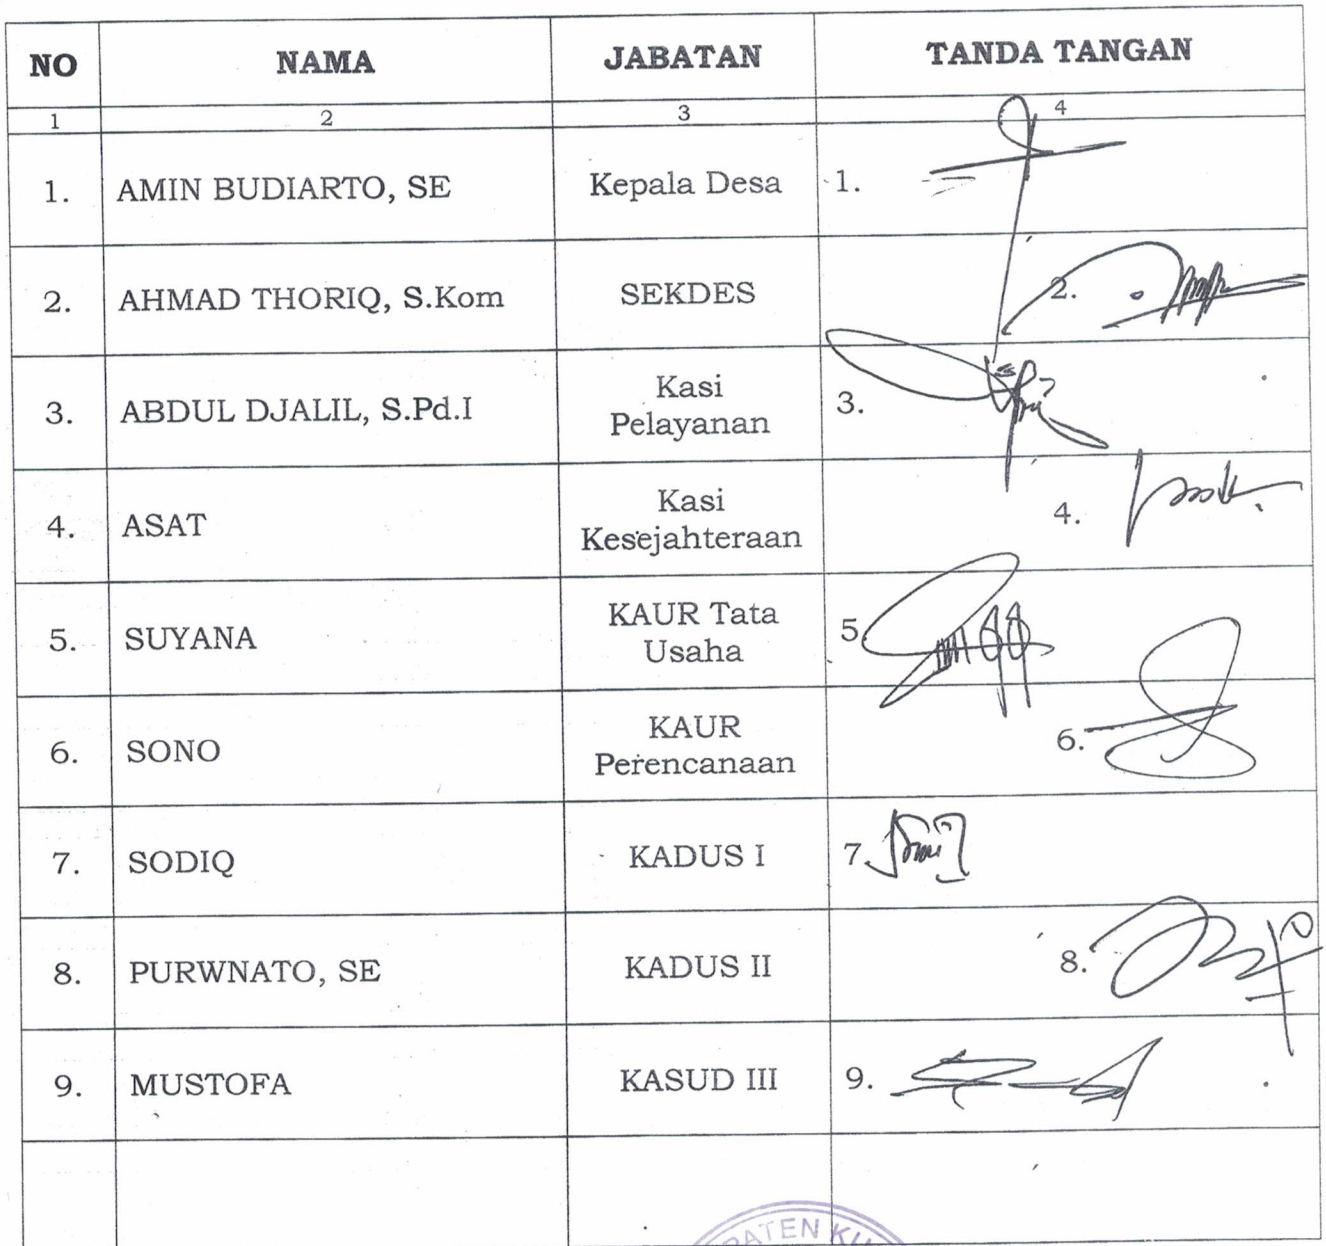 NO NAMA JABATAN TANDA TANGAN
1 2 3 4
1. AMIN BUDIARTO, SE Kepala Desa 1.
2. AHMAD THORIQ, S.Kom SEKDES 2.
3. ABDUL DJALIL, S.Pd.I Kasi
Pelayanan 3.
4. ASAT Kasi
Kesejahteraan 4.
5. SUYANA KAUR Tata
Usaha 5.
6. SONO KAUR
Perencanaan 6.
7. SODIQ KADUS I 7.
8. PURWNATO, SE KADUS II 8.
9. MUSTOFA KASUD III 9.